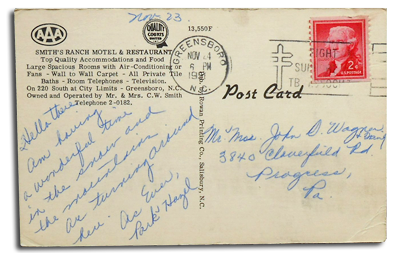 Nov 23
13,550F
AAA
QUALITY
COURTS
UNITED
SMITH'S RANCH MOTEL & RESTAURANT
Top Quality Accommodations and Food
Large Spacious Rooms with Air-Conditioning or
Fans - Wall to Wall Carpet - All Private Tile
Baths - Room Telephones - Television.
On 220 South at City Limits - Greensboro, N.C.
Owned and Operated by Mr. & Mrs. C.W. Smith
Telephone 2-0182.
Hello there
Am having
a wonderful time
in the snow and
the mountains.
Am turning around
here. As Ever,
Park Hazel
Rowan Printing Co., Salisbury, N.C.
GREENSBORO
NOV
PM
N.C.
FIGHT
TB
2¢
Post Card
Mr. Mrs. John D. Wagner
3840 Cloverfield Rd.
Progress,
Pa.